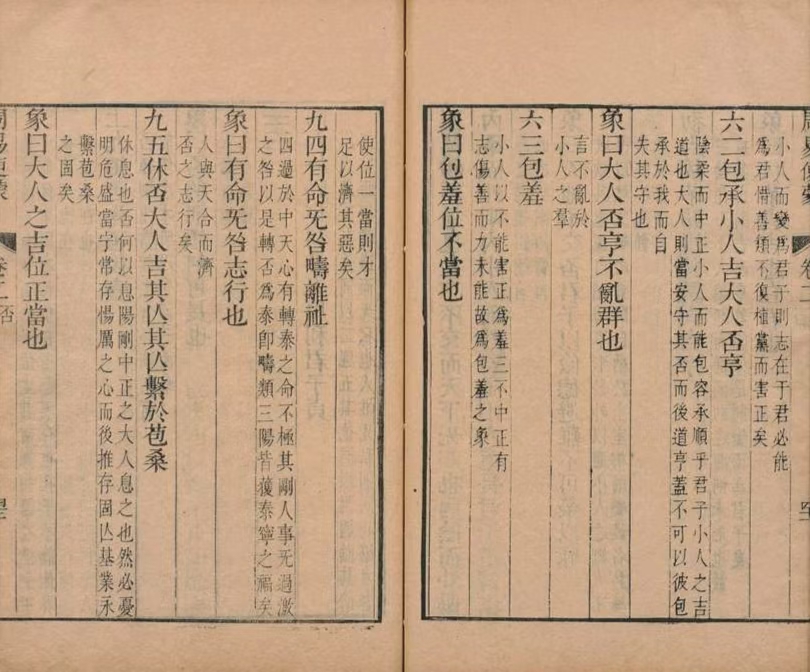 周易便蒙
卷二
小人而變爲君子則志在于君必能
爲君惜善類不復植黨而害正矣
六二包承小人吉大人否亨
陰柔而中正小人而能包容承順乎君子小人之吉
道也大人則當安守其否而後道亨蓋不可以彼包
承於我而自
失其守也
象曰大人否亨不亂群也
言不亂於
小人之羣
六三包羞
小人以不能害正爲羞三不中正有
志傷善而力未能故爲包羞之象
象曰包羞位不當也
使位一當則才
足以濟其惡矣
九四有命旡咎疇離祉
四過於中天心有轉泰之命不極其剛人事旡過激
之咎以是轉否爲泰卽疇類三陽皆獲泰寧之福矣
象曰有命旡咎志行也
人與天合而濟
否之志行矣
九五休否大人吉其亾其亾繫於苞桑
休息也否何以息陽剛中正之大人息之也然必憂
明危盛當宁常存惕厲之心而後推存固亾基業永
繫苞桑
之固矣
象曰大人之吉位正當也
卷二 否